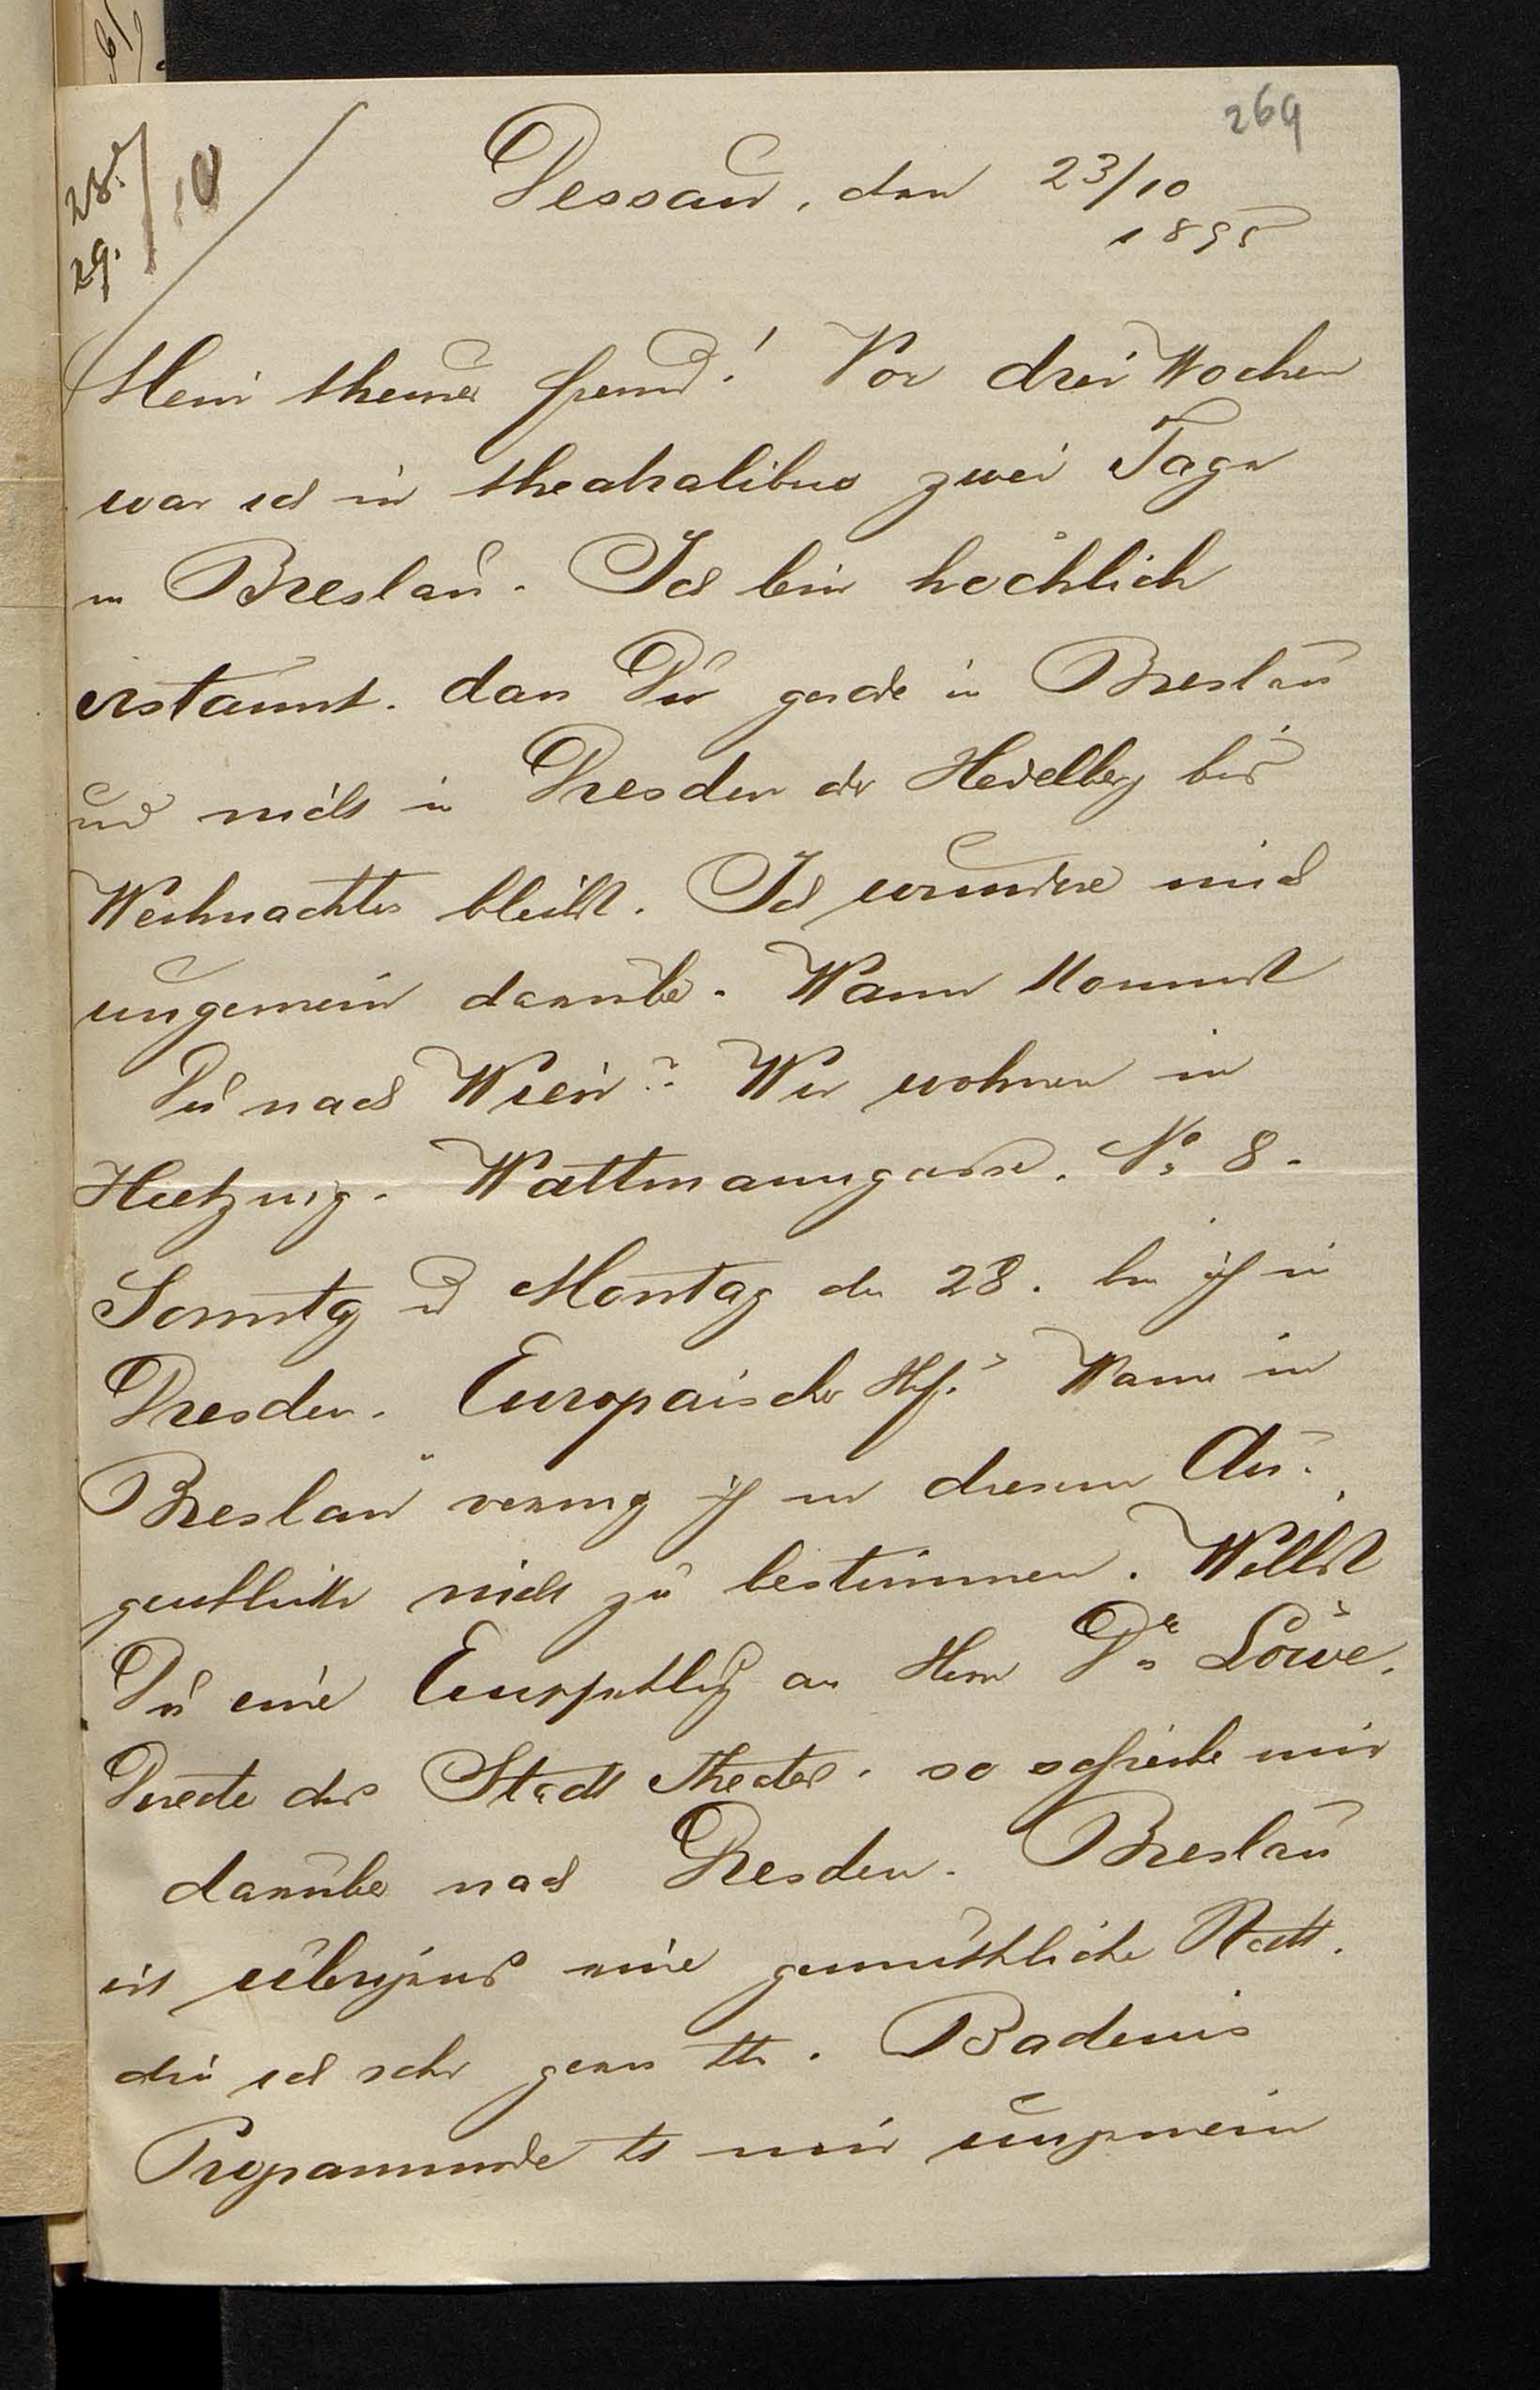 269
28./10
29.
Dessau, den 23/10
1895
Mein theurer Freund! Vor drei Wochen
war ich in theatralibus zwei Tage
in Breslau. Ich bin höchlich
erstaunt, dass Du gerade in Breslau
und nicht in Dresden oder Heidelberg bis
Weihnachten bleibst. Ich wundere mich
ungemein darüber. Wann kommst
Du nach Wien? Wir wohnen in
Hietzing. Wattmanngasse. No 8.
Sonntag und Montag den 28. bin ich in
Dresden. Europäischer Hof. Wann in
Breslau vermag ich in diesem Au-
genblicke nicht zu bestimmen. Willst
Du eine Empfehlung an Herrn Dr Löwe,
Director des Stadt Theaters, so schreibe mir
darüber nach Dresden. Breslau
ist übrigens eine gemüthliche Stadt,
die ich sehr gern . Badenis
Programmrede ist mir ungemein